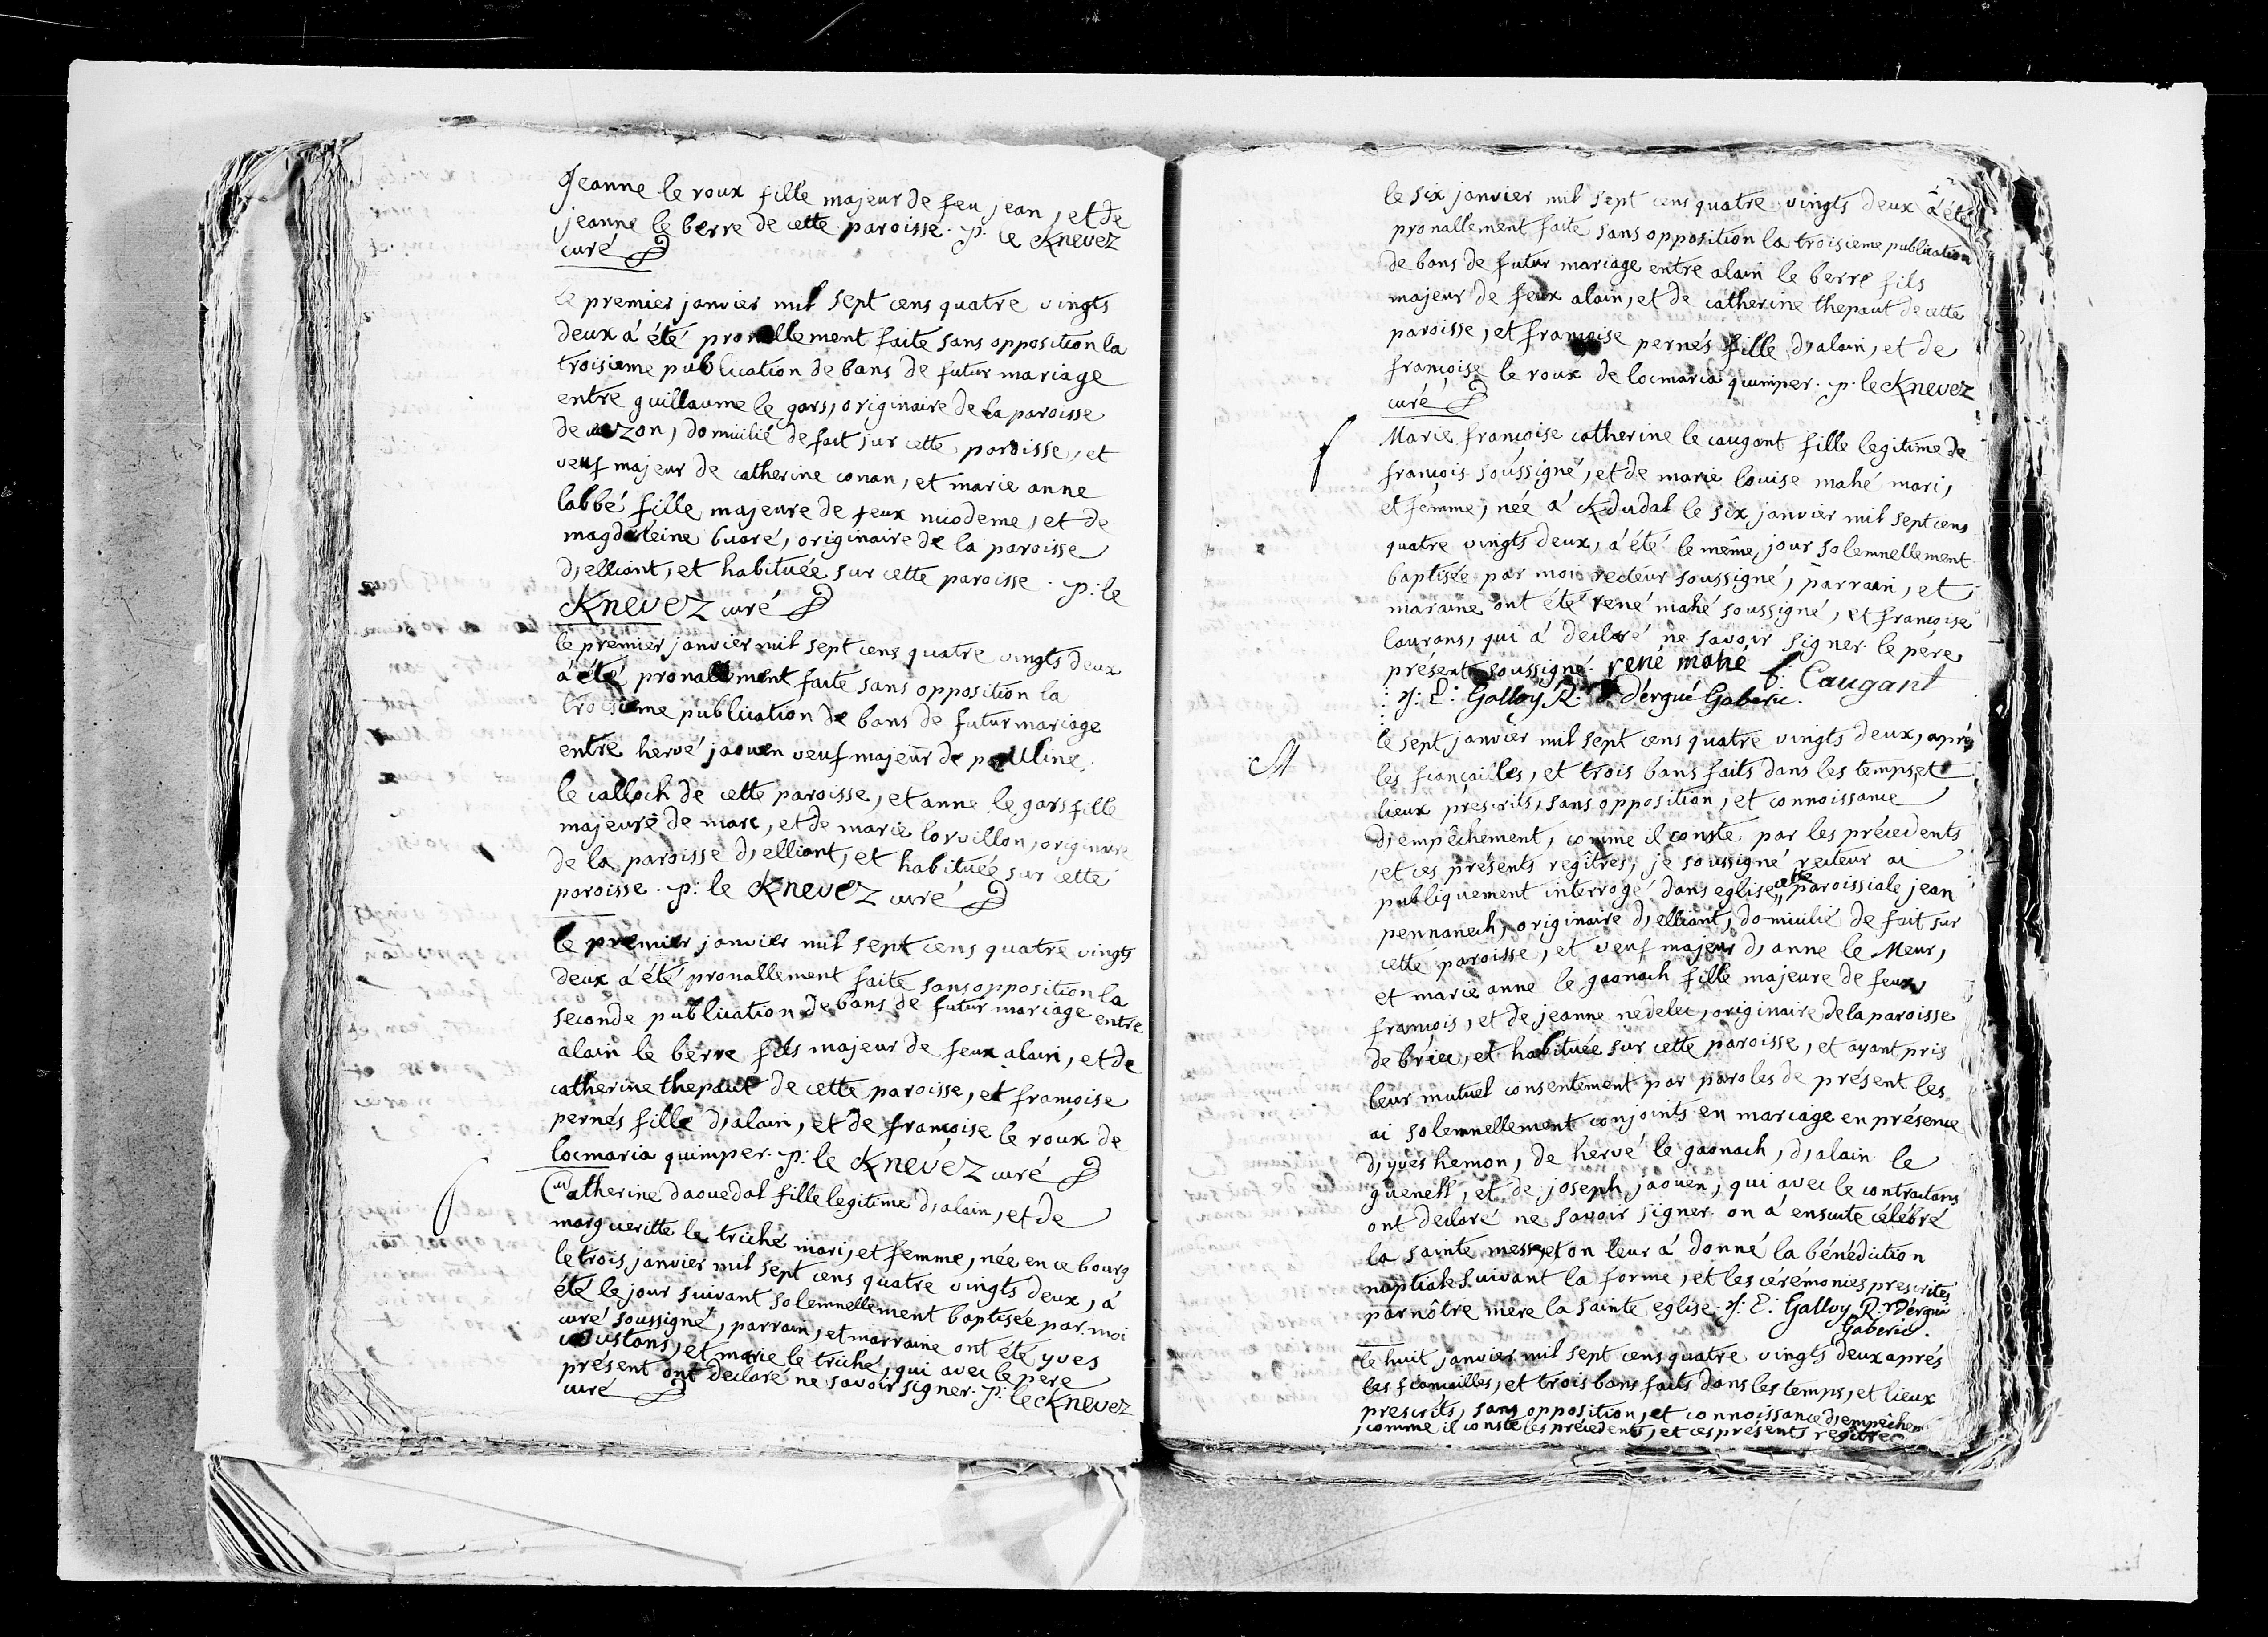 Jeanne le roux fille majeur de feu jean, et de
jeanne le berre de cette paroisse. p: le Knevez
curé
le premier janvier mil sept cens quatre vingts
deux a été pronallement faite sans opposition la
troisieme publication de bans de futur mariage
entre guillaume le gars, originaire de la paroisse
de cuzon, domicilié de fait sur cette paroisse, et
veuf majeur de catherine conan, et marie anne
labbé fille majeure de feux nicodeme, et de
magdeleine buaré, originaire de la paroisse
d'elliant, et habituée sur cette paroisse. p: le
Knevez curé
le premier janvier mil sept cens quatre vingts deux
a été pronallement faite sans opposition la
troisieme publication de bans de futur mariage
entre hervé jaouen veuf majeur de pauline
le calloch de cette paroisse, et anne le gars fille
majeure de marc, et de marie lorvillon, originaire
de la paroisse d'elliant, et habituée sur cette
paroisse. p: le Knevez curé
le premier janvier mil sept cens quatre vingts
deux a été pronallement faite sans opposition la
seconde publication de bans de futur mariage entre
alain le berre fils majeur de feux alain, et de
catherine thepaut de cette paroisse, et françoise
pernés fille d'alain, et de françoise le roux de
locmaria quimper. p: le Knevez curé
Catherine daouedal fille legitime d'alain, et de
margueritte le triché mari, et femme, née en ce bourg
le trois janvier mil sept cens quatre vingts deux, a
été le jour suivant solemnellement baptisée par moi
curé soussigné, parrain, et marraine ont été yves
coustans, et marie le triché, qui avec le pere
présent ont declaré ne savoir signer. p: le Knevez
curé
le six janvier mil sept cens quatre vingts deux a été
pronallement faite sans opposition la troisieme publication
de bans de futur mariage entre alain le berre fils
majeur de feux alain, et de catherine thepaut de cette
paroisse, et françoise pernés fille d'alain, et de
françoise le roux de locmaria quimper. p: le Knevez
curé
Marie françoise catherine le caugant fille legitime de
françois soussigné, et de marie louise mahé mari,
et femme, née a Kdudal le six janvier mil sept cens
quatre vingts deux, a été le même jour solemnellement
baptisée par moi recteur soussigné, parrain, et
maraine ont été rené mahé soussigné, et françoise
laurans, qui a declaré ne savoir signer. le pére
présent soussigné. rené mahé f: Caugant
j: E: Galloy R. d'ergué Gaberic.
M
le sept janvier mil sept cens quatre vingts deux, aprés
les fiançailles, et trois bans faits dans les temps, et
lieux prescrits, sans opposition, et connoissance
d'empêchement, comme il conste par les précedents
, et ces présents regîtres, je soussigné recteur ai
publiquement interrogé dans cette eglise paroissiale jean
pennanech, originaire d'elliant, domicilié de fait sur
cette paroisse, et veuf majeur d'anne le Meur,
et marie anne le gaonach fille majeure de feux
françois, et de jeanne nedelec, originaire de la paroisse
de briec, et habituée sur cette paroisse, et ayant pris
leur mutuel consentement par paroles de présent les
ai solemnellement conjoints en mariage en présence
d'yves hemon, de hervé le gaonach, d'alain le
guenell, et de joseph jaouen, qui avec le contractans
ont declaré ne savoir signer. on a ensuite célébré
la sainte messe, et on leur a donné la bénédiction
nuptiale suivant la forme, et les cérémonies prescrites
par nôtre mere la sainte eglise. j: E: Galloy R. d'ergué
Gaberic.
le huit janvier mil sept cens quatre vingts deux aprés
les fiançailles, et trois bans faits dans les temps, et lieux
prescrits, sans opposition, et connoissance d'empêchem
, comme il conste les précedents, et ces présents regîtres